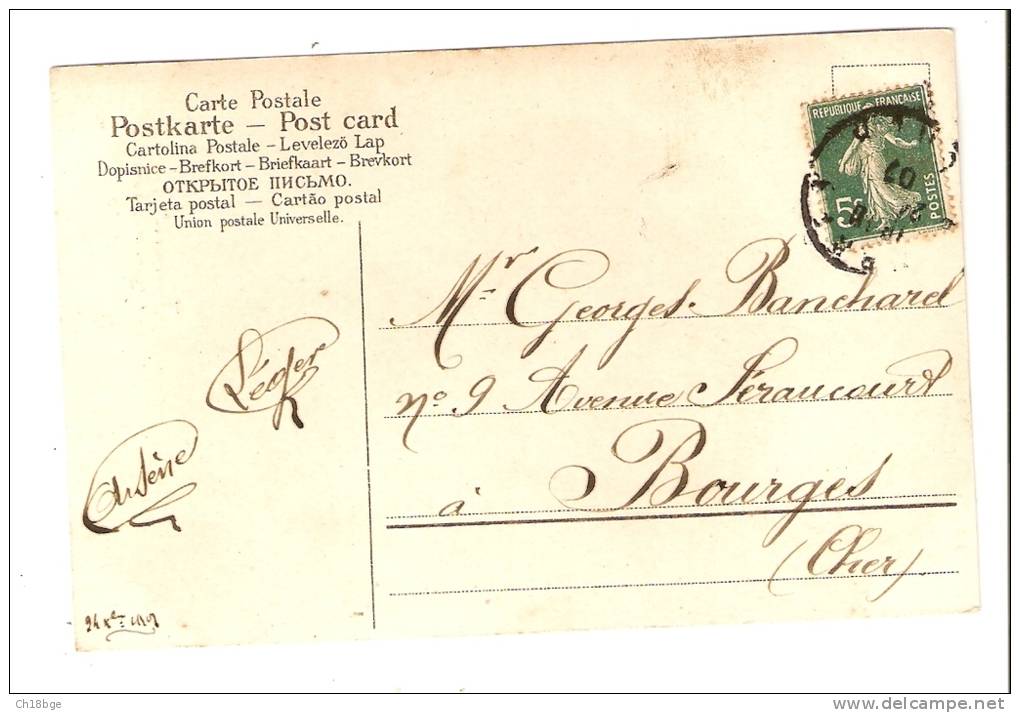 Carte Postale
Postkarte – Post card
Cartolina Postale – Levelezö Lap
Dopisnice – Brefkort – Briefkaart – Brevkort
ОТКРЫТОЕ ПИСЬМО.
Tarjeta postal – Cartão postal
Union postale Universelle.
REPUBLIQUE FRANÇAISE
5c
POSTES
07
Mr Georges Banchard
no 9 Avenue Séraucourt
à Bourges
(Cher)
Léger
Arsène
Ch18bge
delcampe.net